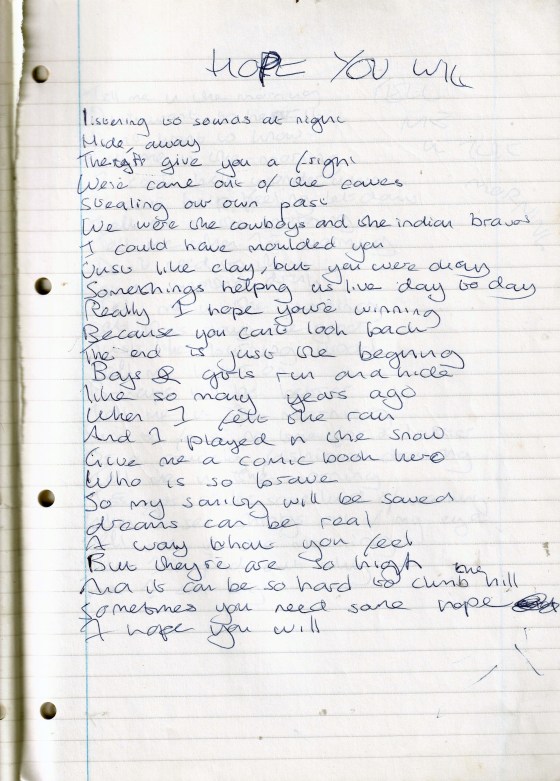 HOPE YOU WILL
Listening to sounds at night
Hide, away
They give you a fright
We're came out of the caves
Stealing our own past
We were the cowboys and the indian braves
I could have moulded you
Just like clay, but you were okay
Somethings helpng us live day to day
Really I hope you're winning
Because you cant look back
The end is just the begining
Boys & girls run and hide
like so many years ago
When I felt the rain
And I played n the snow
Give me a comic book hero
Who is so brave
So my sanity will be saved
dreams can be real
A way thats you feel
But theyre are so high
And it can be so hard to climb the hill
Sometimes you need some hope
I hope you will